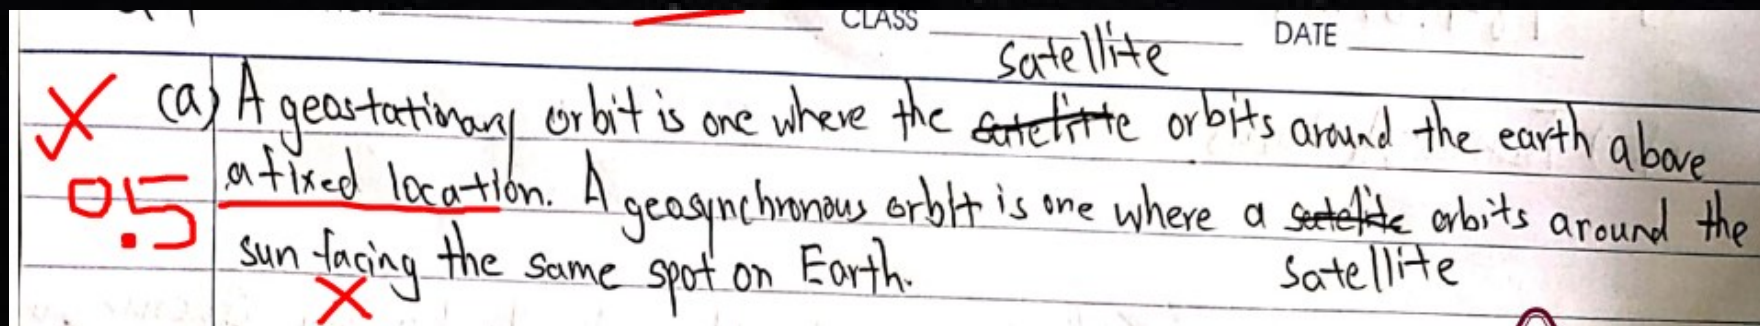 CLASS DATE
satellite
(a) A geostationary orbit is one where the orbits around the earth above
a fixed location. A geosynchronous orbit is one where a satelite orbits around the
0.5
sun facing the same spot on Earth.
satellite